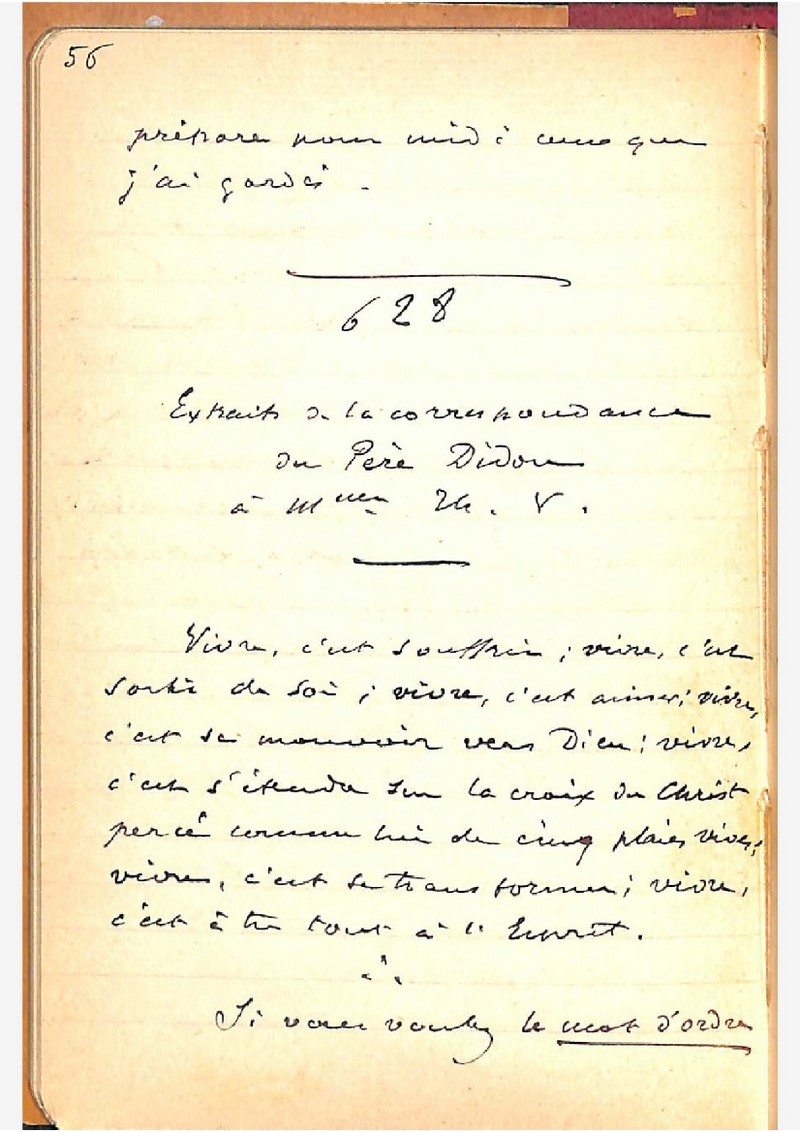 56
prépare pour midi ceux que
j'ai gardés.
628
Extraits de la correspondance
du Père Didon
à Mlle Th. V.
Vivre, c'est souffrir ; vivre, c'est
sortir de soi ; vivre, c'est aimer ; vivre,
c'est se mouvoir vers Dieu ; vivre,
c'est s'étendre sur la croix du Christ
percé comme lui de cinq plaies vives ;
vivre, c'est se transformer ; vivre,
c'est être tout à l'Esprit.
Si vous voulez le mot d'ordre